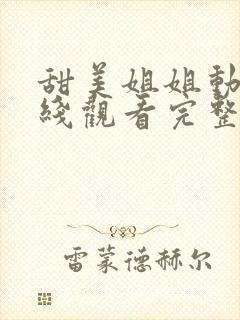 甜美姐姐動
綫觀看完整
雷蒙德赫尔